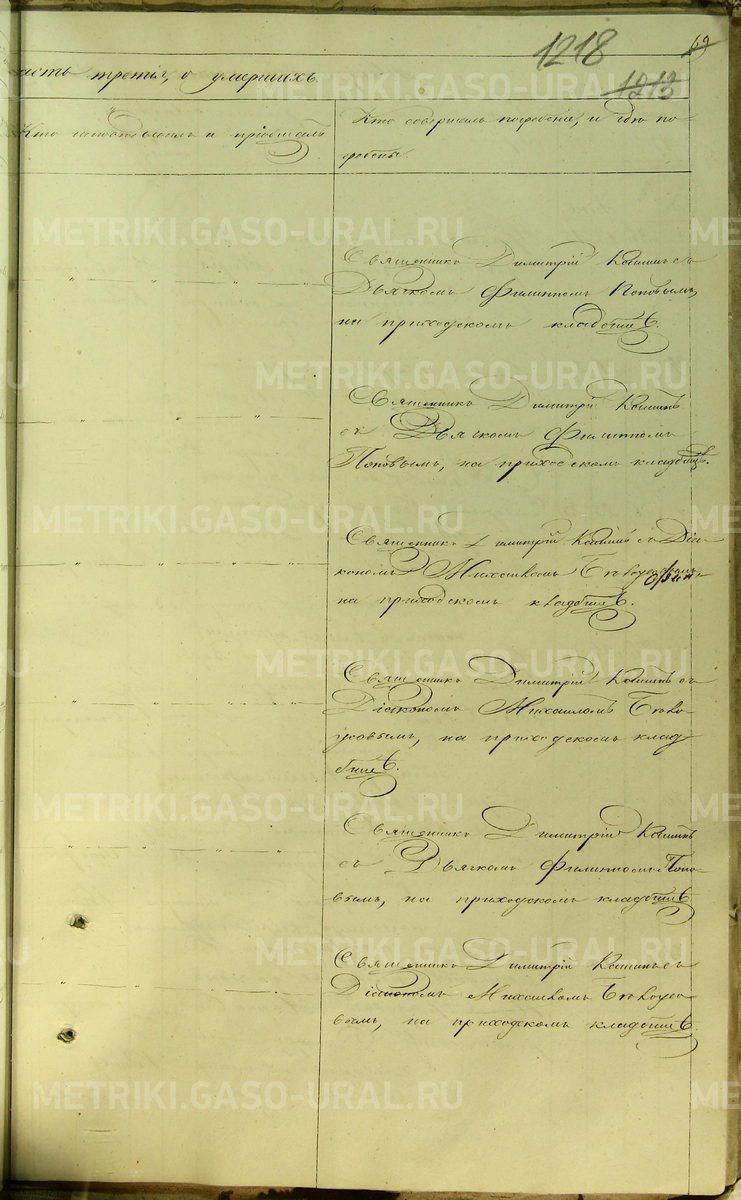 1218
69
1213
часть третія, о умершихъ.
Кто исповѣдывалъ и пріобщалъ
Кто совершалъ погребеніе, и гдѣ по-
гребены.
Священникъ Димитрій Кашинъ съ
Дьячкомъ Филиппомъ Поповымъ,
на приходскомъ кладбищѣ.
Священникъ Димитрій Кашинъ
съ Дьячкомъ Филиппомъ
Поповымъ, на приходскомъ кладбищѣ.
Священникъ Димитрій Кашинъ съ Діа-
кономъ Михаиломъ
на приходскомъ кладбищѣ.
Священникъ Димитрій Кашинъ съ
Діакономъ Михаиломъ
на приходскомъ клад-
бищѣ.
Священникъ Димитрій Кашинъ
съ Дьячкомъ Филиппомъ Попо-
вымъ, на приходскомъ кладбищѣ
Священникъ Димитрій Кашинъ съ
Діакономъ Михаиломъ
на приходскомъ кладбищѣ.
METRIKI.GASO-URAL.RU